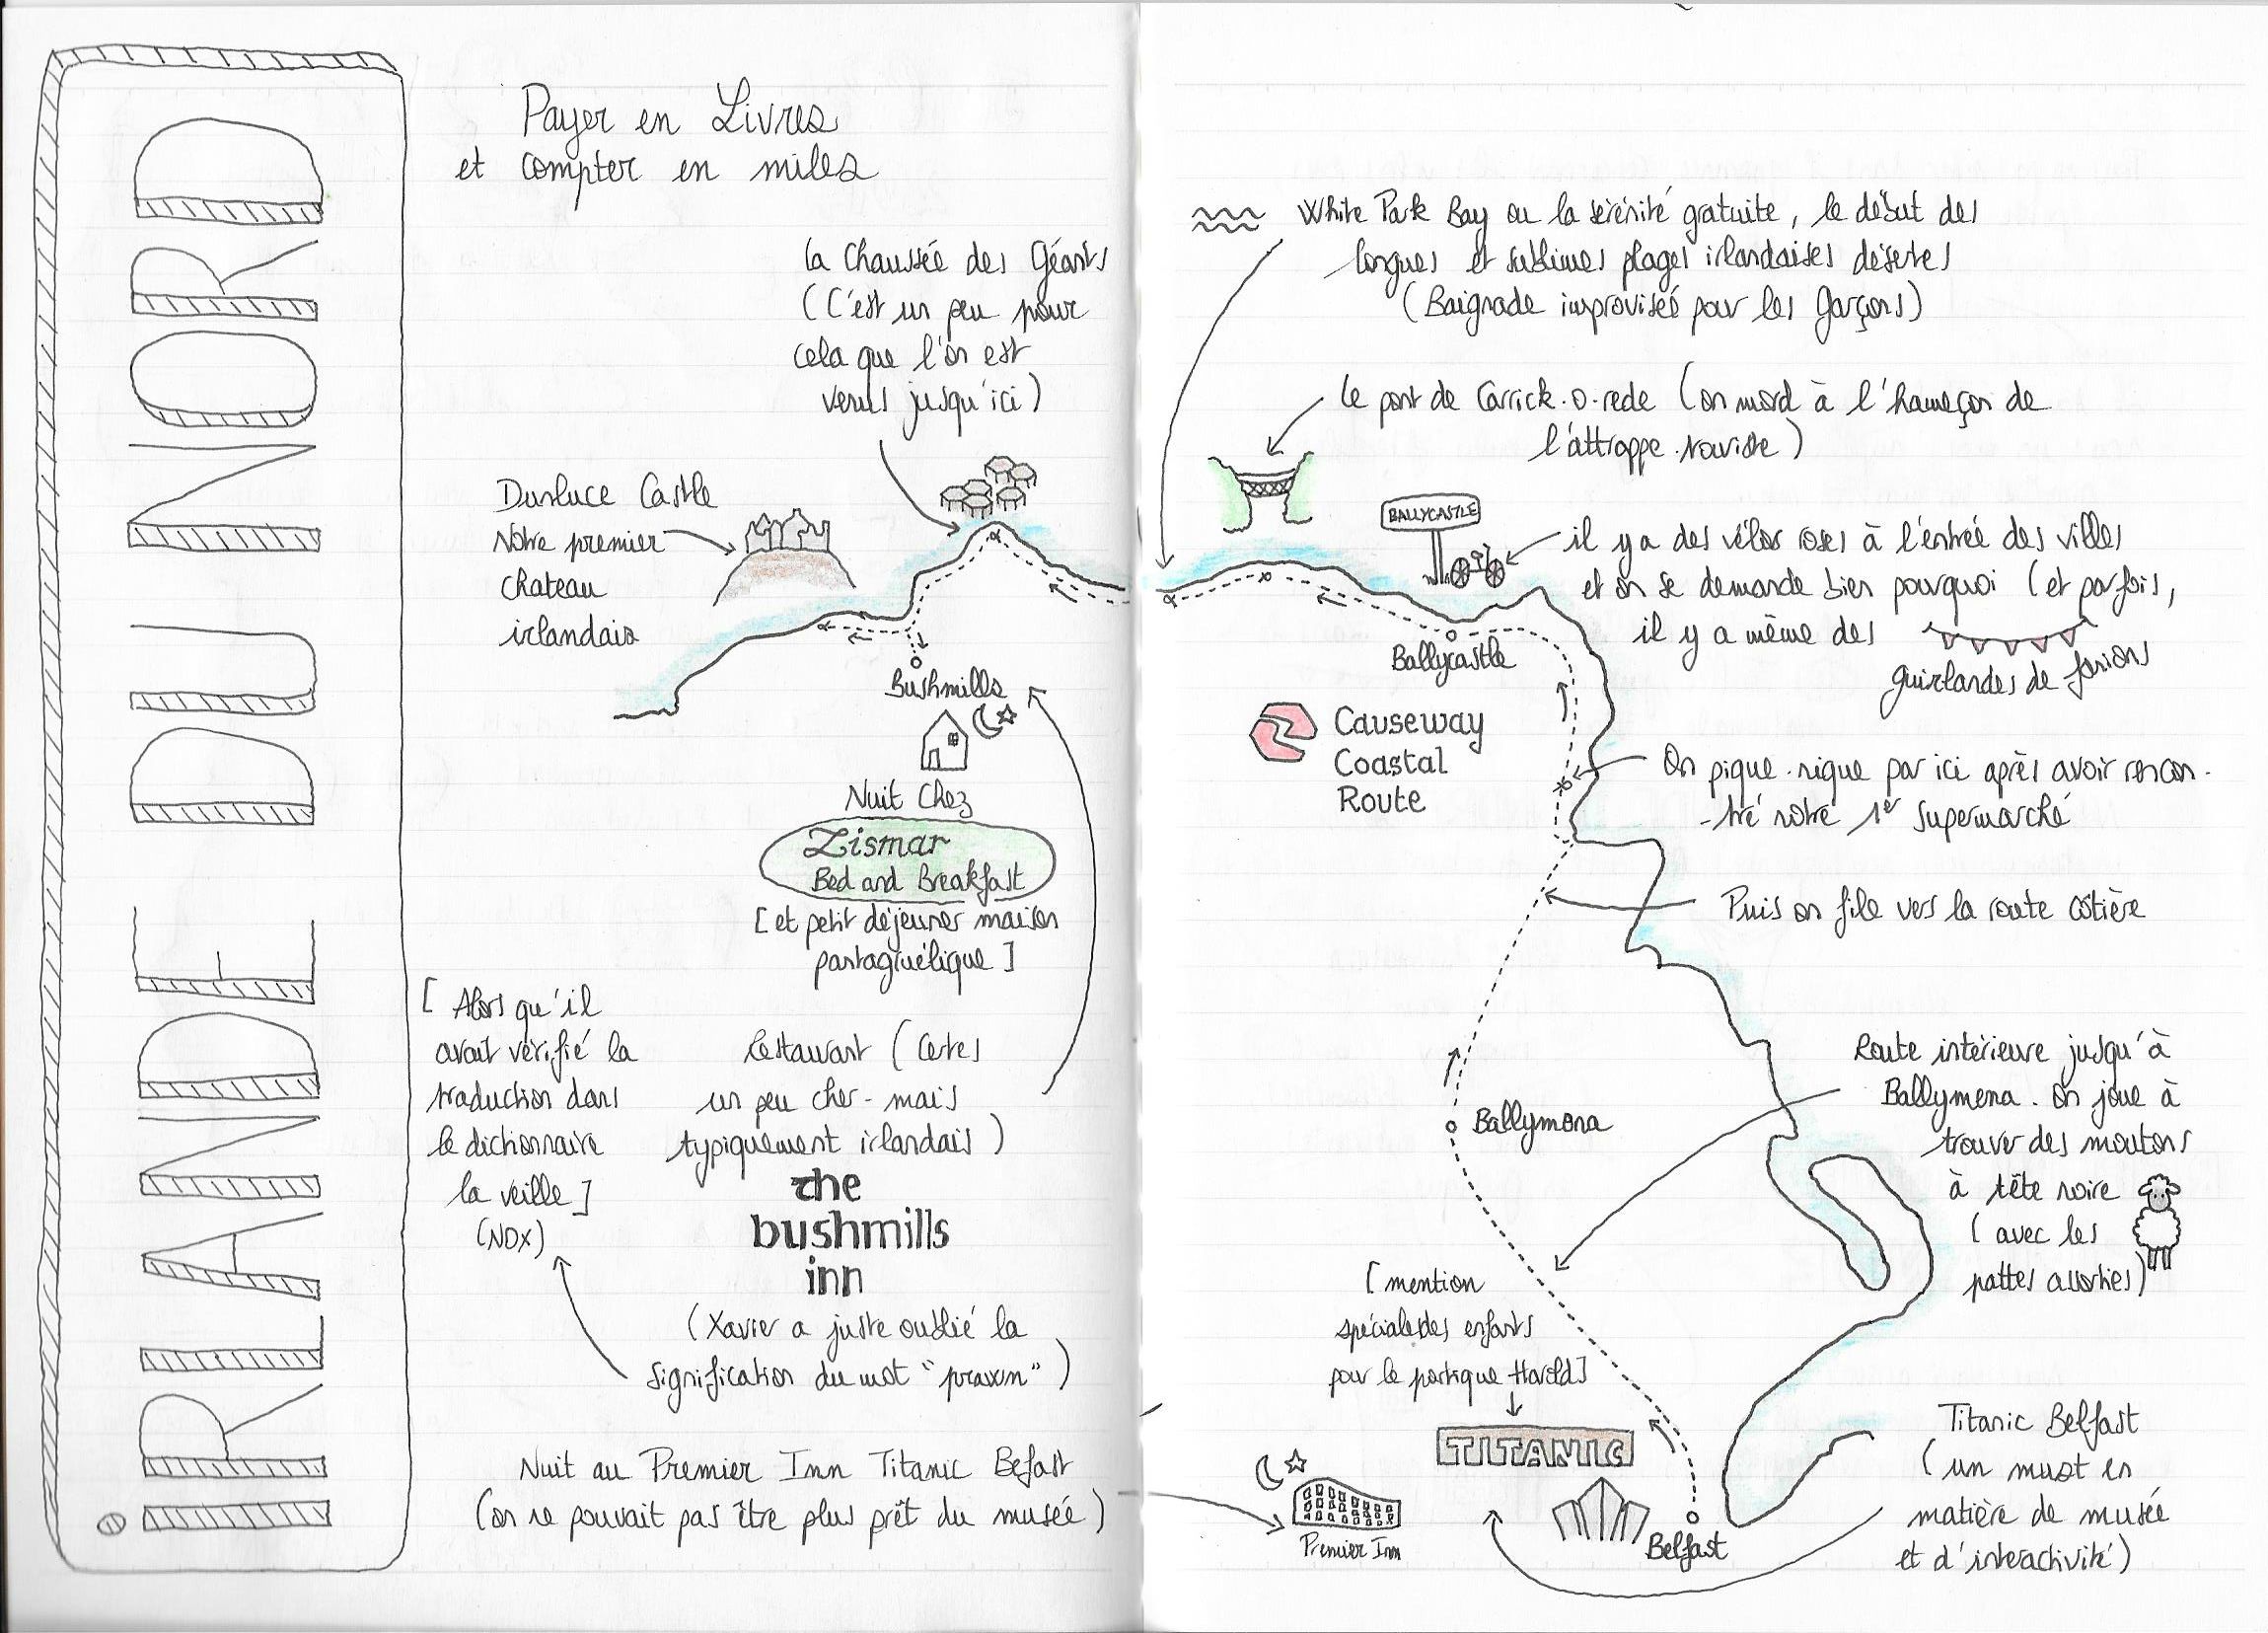 IRLANDE DU NORD
Payer en Livres
et compter en miles
la Chaussée des Géants
(C'est un peu pour
cela que l'on est
venus jusqu'ici)
Dunluce Castle
Notre premier
chateau
irlandais
Bushmills
Nuit chez
Lismar
Bed and Breakfast
[et petit déjeuner maison
pantagruélique]
[Alors qu'il
avait vérifié la
traduction dans
le dictionnaire
la veille]
(NDX)
Restaurant (certes
un peu cher - mais
typiquement irlandais)
the
bushmills
inn
(Xavier a juste oublié la
signification du mot "prawn")
Nuit au Premier Inn Titanic Befast
(on ne pouvait pas être plus prêt du musée)
White Park Bay ou la sérénité gratuite, le début des
longues et sublimes plages irlandaises désertes
(Baignade improvisée pour les garçons)
le pont de Carrick.o.rede (on mord à l'hameçon de
l'attrappe.touriste)
BALLYCASTLE
il y a des vélos roses à l'entrée des villes
et on se demande bien pourquoi (et parfois,
il y a même des
guirlandes de fanions
Ballycastle
Causeway
Coastal
Route
On pique.nique par ici après avoir rencon-
-tré notre 1er supermarché
Puis on file vers la route côtière
Ballymena
Route intérieure jusqu'à
Ballymena. On joue à
trouver des moutons
à tête noire
(avec les
pattes assorties)
[mention
spéciale des enfants
pour le portique Harold]
TITANIC
Premier Inn
Belfast
Titanic Belfast
(un must en
matière de musée
et d'interactivité)